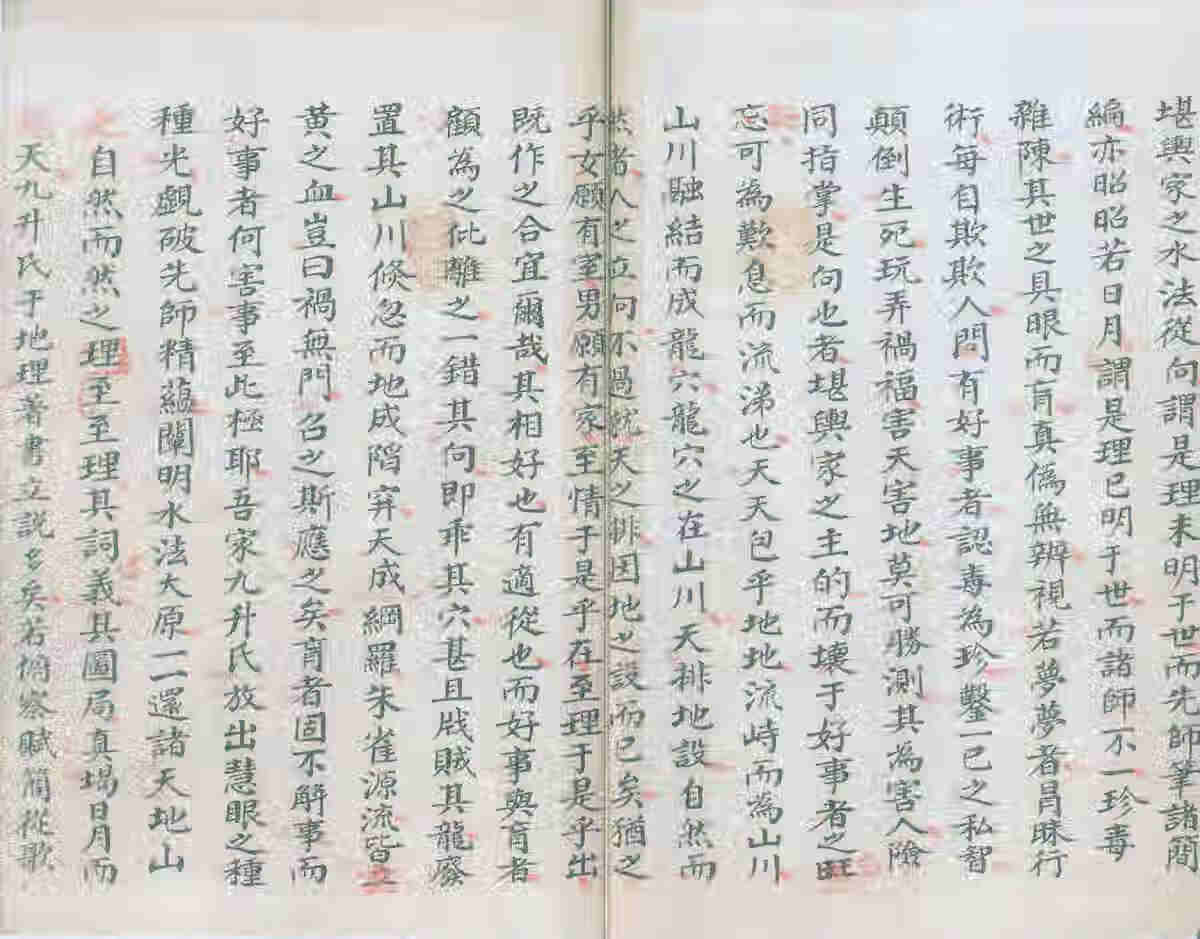 堪輿家之水法從向謂是理未明于世而先師筆諸簡
編亦昭昭若日月謂是理已明于世而諸師不一珍毒
雜陳其世之具眼而盲真僞無辨視若夢夢者冐昧行
術每自欺欺人間有好事者認毒為珍鑿一已之私智
顛倒生死玩弄禍福害天害地莫可勝測其為害人險
同指掌是向也者堪輿家之主的而壞于好事者之
忘可為歎息而流涕也夫天包乎地地流峙而為山川
山川融結而成龍穴龍穴之在山川天排地設自然而
然者人之立向亦過就天之排因地之設而已矣猶之
乎女願有室男願有家至情于是乎在至理于是乎出
既作之合宜爾哉其相好也有適從也而好事與盲者
顧為之仳離之一錯其向即乖其穴甚且戕賊其龍廢
置其山川倐忽而地成陷穽天成綱羅朱雀源流皆
黄之血豈曰禍無門召之斯應之矣盲者固不解事而
好事者何害事至此極耶吾家九升氏放出慧眼之種
種光覷破先師精蘊闡明水法大原一一還諸天地山
自然而然之理至至理具詞義具圖局真堪日月而
天九升氏于地理著書立説多矣若 察賦簡從歌